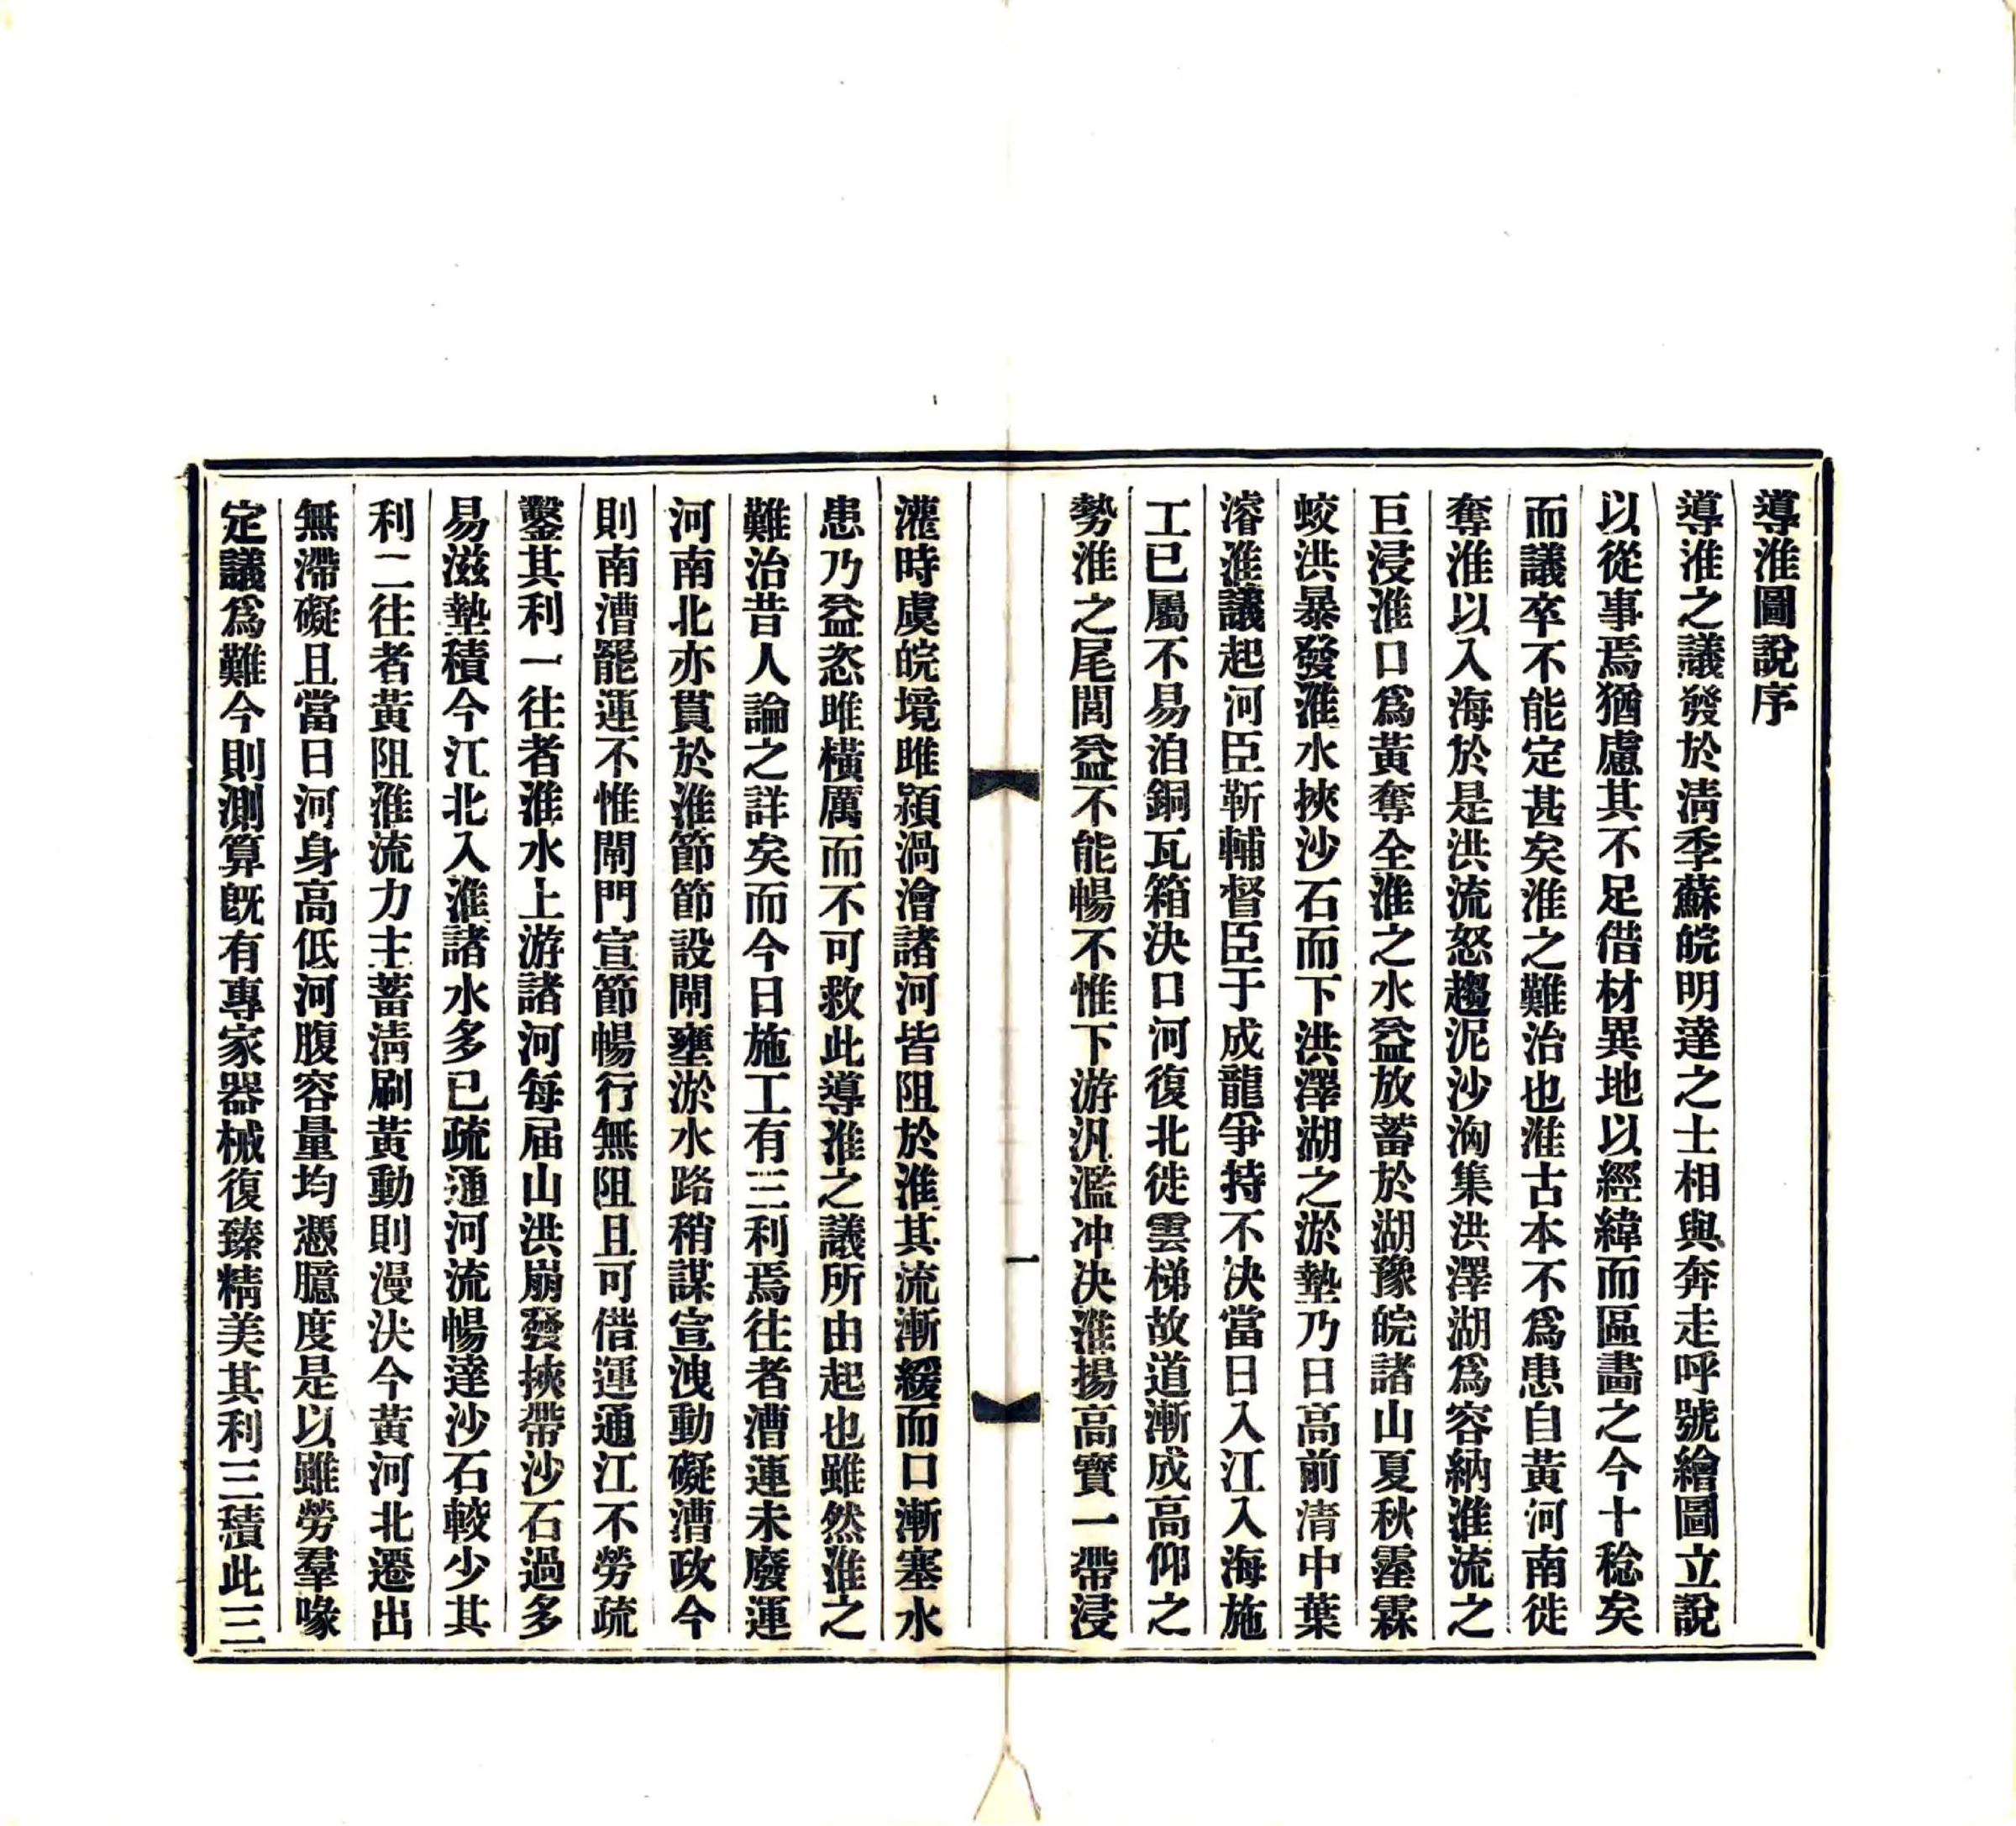 導淮圖說序
導淮之議發於淸季蘇皖明達之士相與奔走呼號繪圖立說
以從事焉猶慮其不足借材異地以經緯而區畫之今十稔矣
而議卒不能定甚矣淮之難治也淮古本不爲患自黃河南徙
奪淮以入海於是洪流怒趨泥沙洶集洪澤湖爲容納淮流之
巨浸淮口爲黃奪全淮之水益放蓄於湖豫皖諸山夏秋霪霖
蛟洪暴發淮水挾沙石而下洪澤湖之淤墊乃日高前清中葉
濬淮議起河臣靳輔督臣于成龍爭持不決當日入江入海施
工已屬不易洎銅瓦箱決口河復北徙雲梯故道漸成高仰之
勢淮之尾閭益不能暢不惟下游汎濫冲決淮揚高寶一帶浸
一
灌時虞皖境雎潁渦澮諸河皆阻於淮其流漸緩而口漸塞水
患乃益恣雎橫厲而不可救此導淮之議所由起也雖然淮之
難治昔人論之詳矣而今日施工有三利焉往者漕運未廢運
河南北亦貫於淮節節設閘壅淤水路稍謀宣洩動礙漕政今
則南漕罷運不惟閘門宣節暢行無阻且可借運通江不勞疏
鑿其利一往者淮水上游諸河每屆山洪崩發挾帶沙石過多
易滋墊積今江北入淮諸水多已疏通河流暢達沙石較少其
利二往者黃阻淮流力主蓄淸刷黃動則漫決今黃河北遷出
無滯礙且當日河身高低河腹容量均憑臆度是以雖勞羣喙
定議爲難今則測算旣有專家器械復臻精美其利三積此三